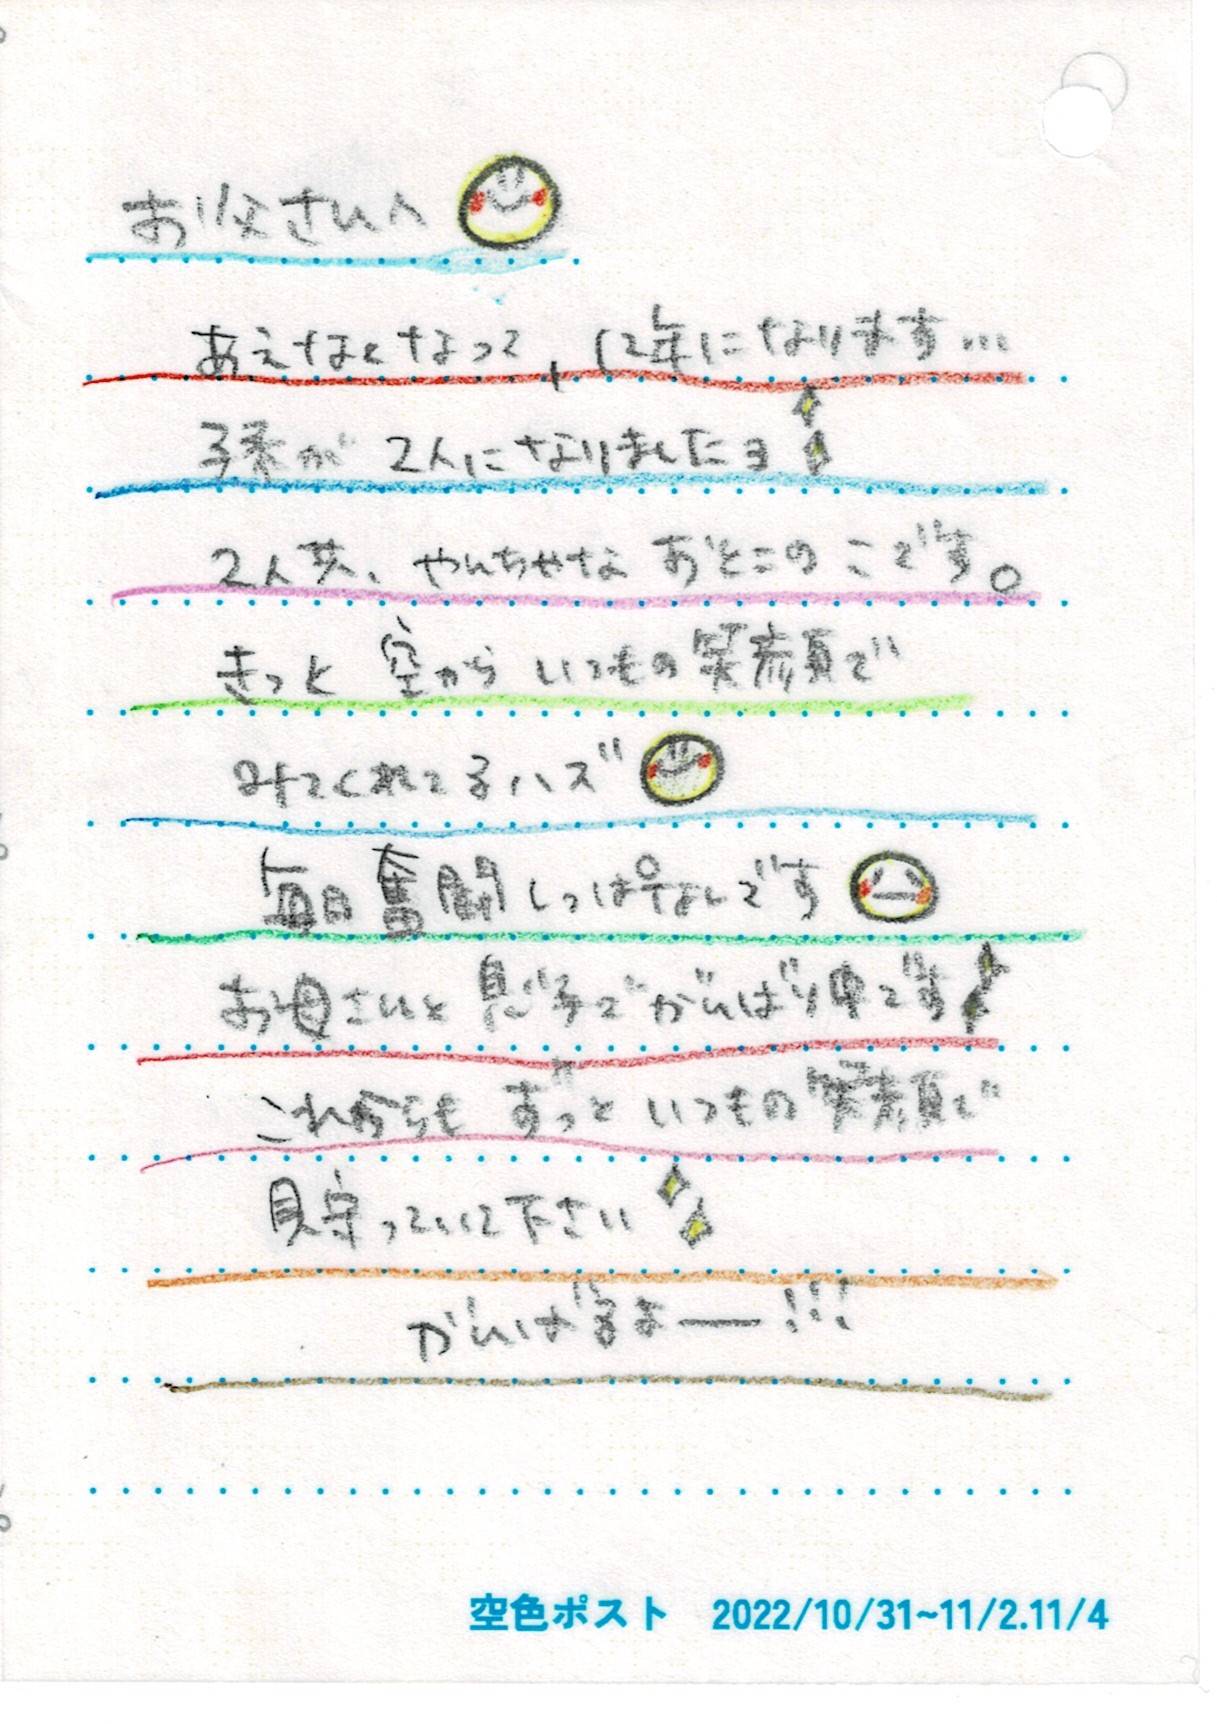 お父さんへ
あえなくなって、12年になります…
子孫が 2人になりましたヨ
2人共、やんちゃな おとこのこです。
きっと 空から いつもの笑顔で
みてくれてるハズ
毎日 奮闘しっぱなしです
お母さんと 息子でがんばり中です
これからも ずっと いつもの笑顔で
見守っていて下さい
がんばるよー!!!
空色ポスト 2022/10/31~11/2.11/4